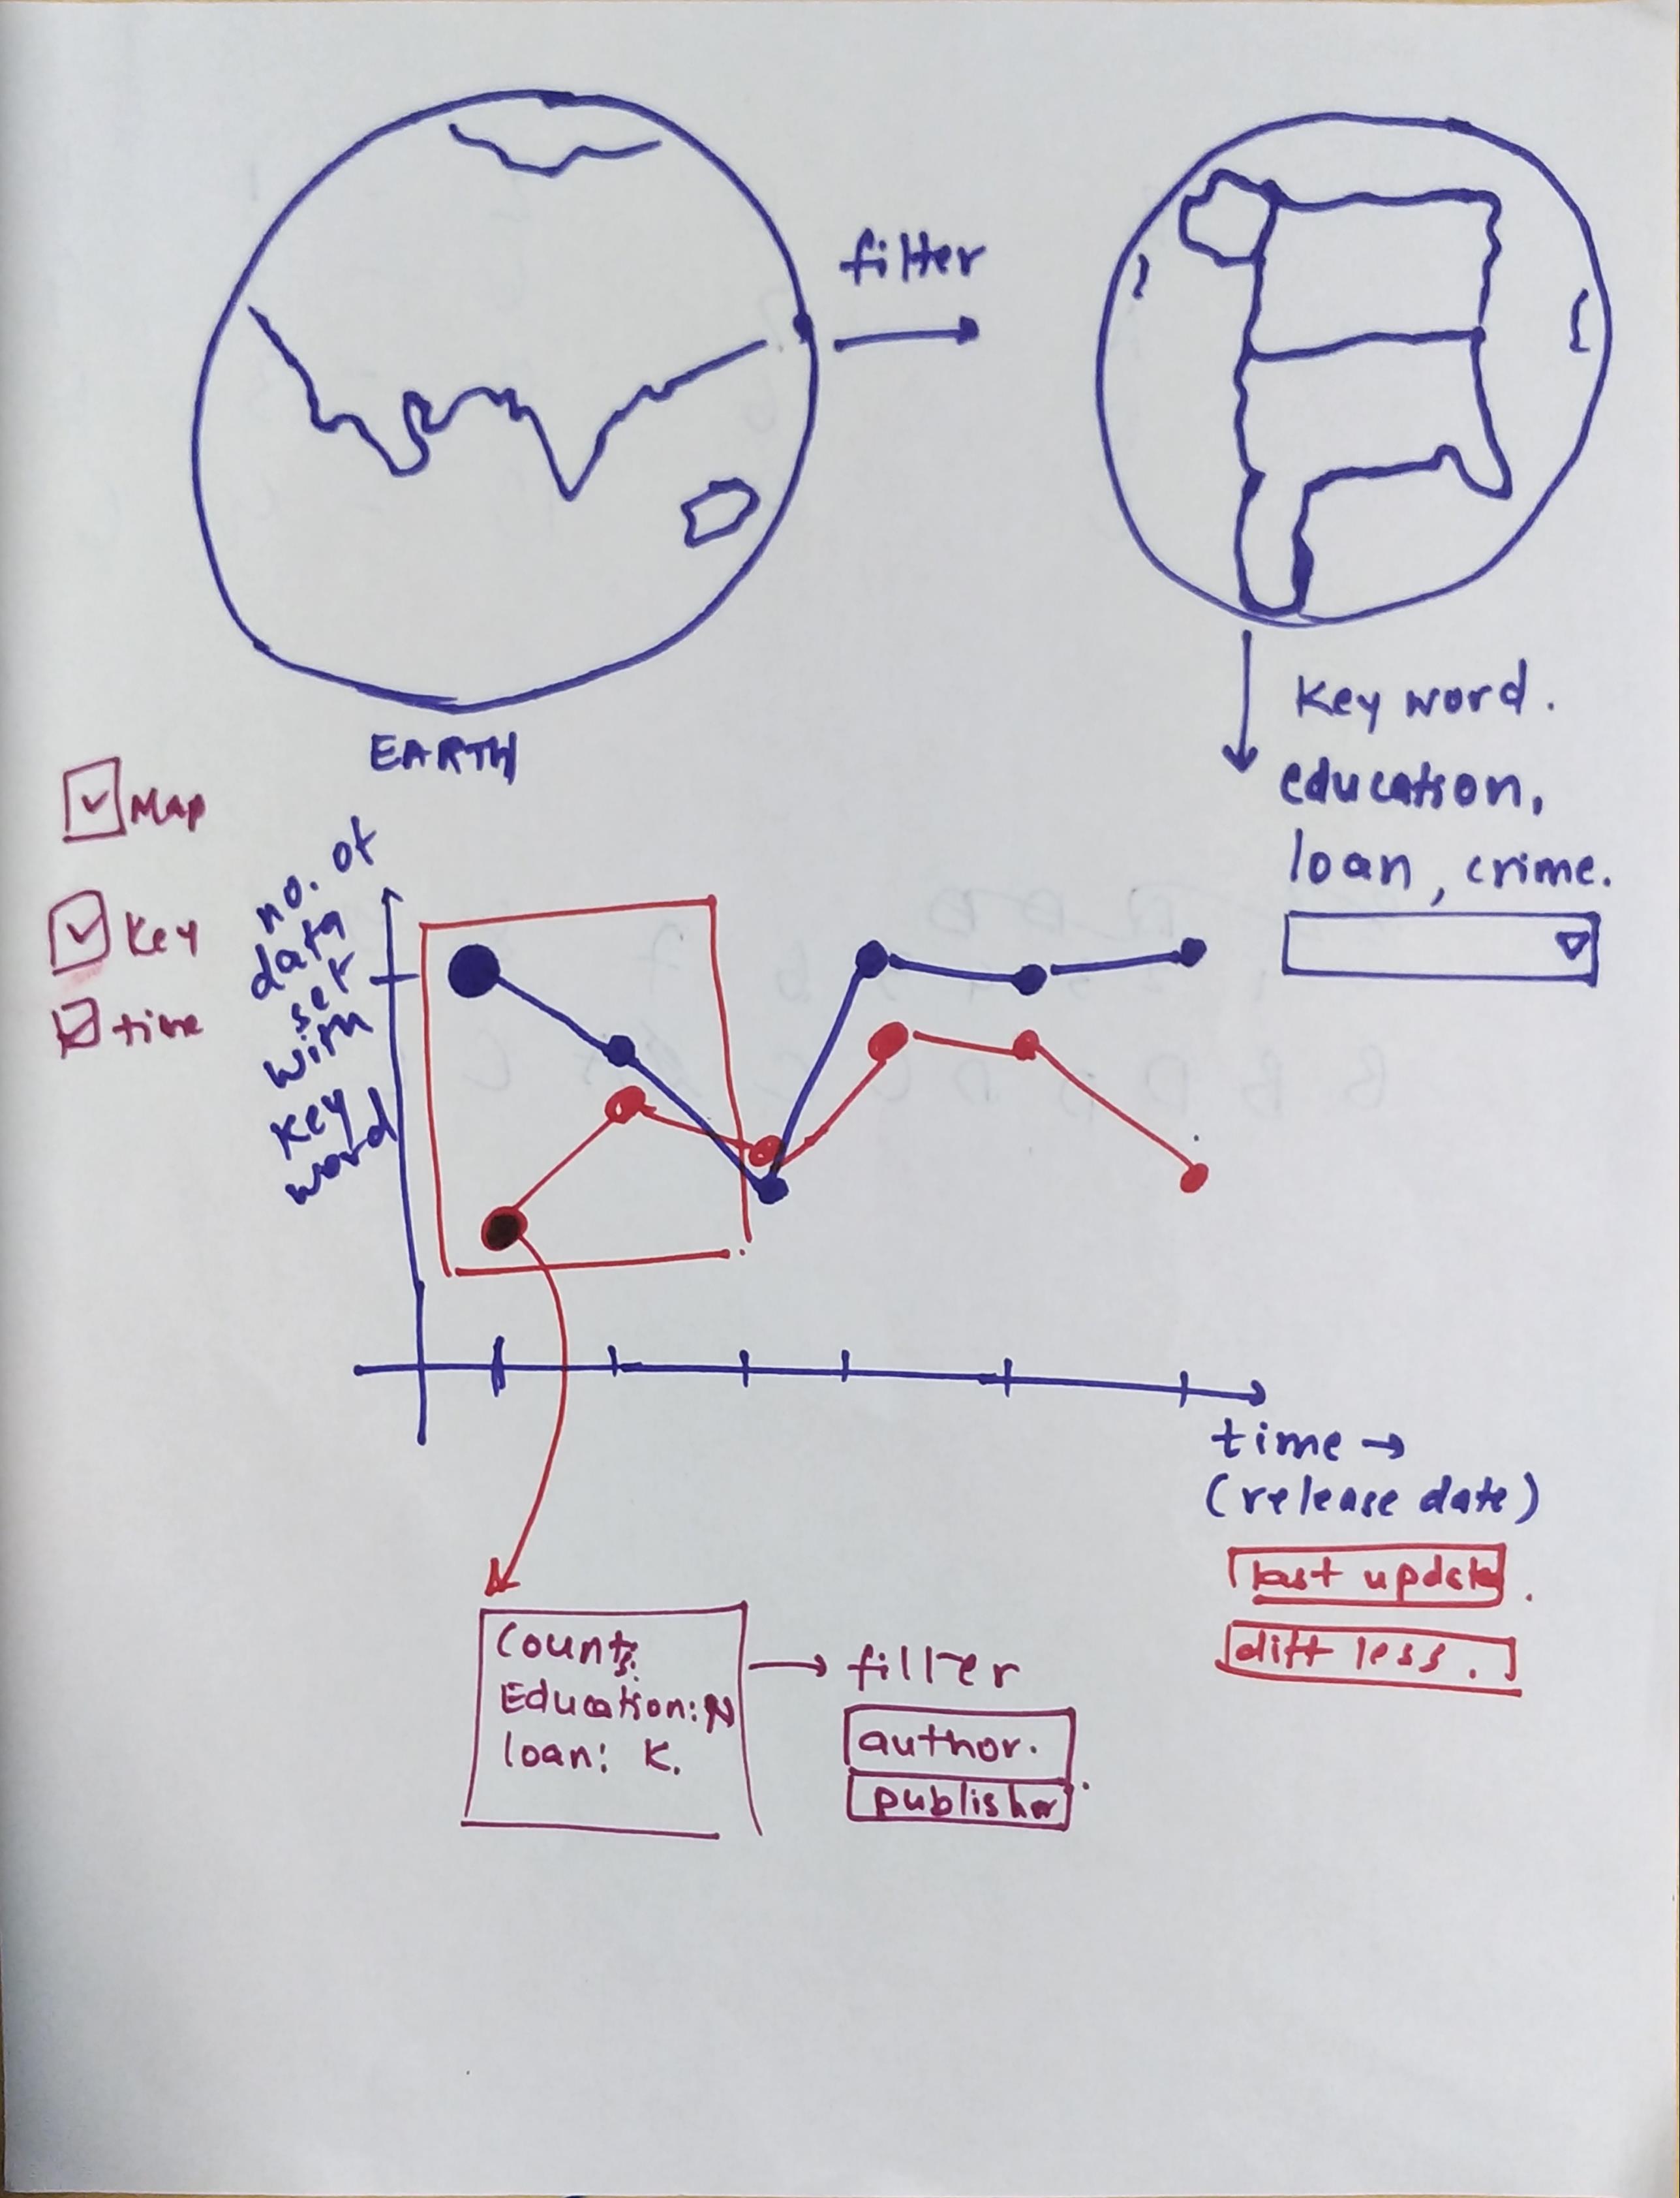 filter
EARTH
Key word.
education,
loan, crime.
Map
Key
time
no. of
data
set
with
key
word
time →
(release date)
last update
diff less.
Counts:
Education: N
loan: K.
→ filter
author.
publisher